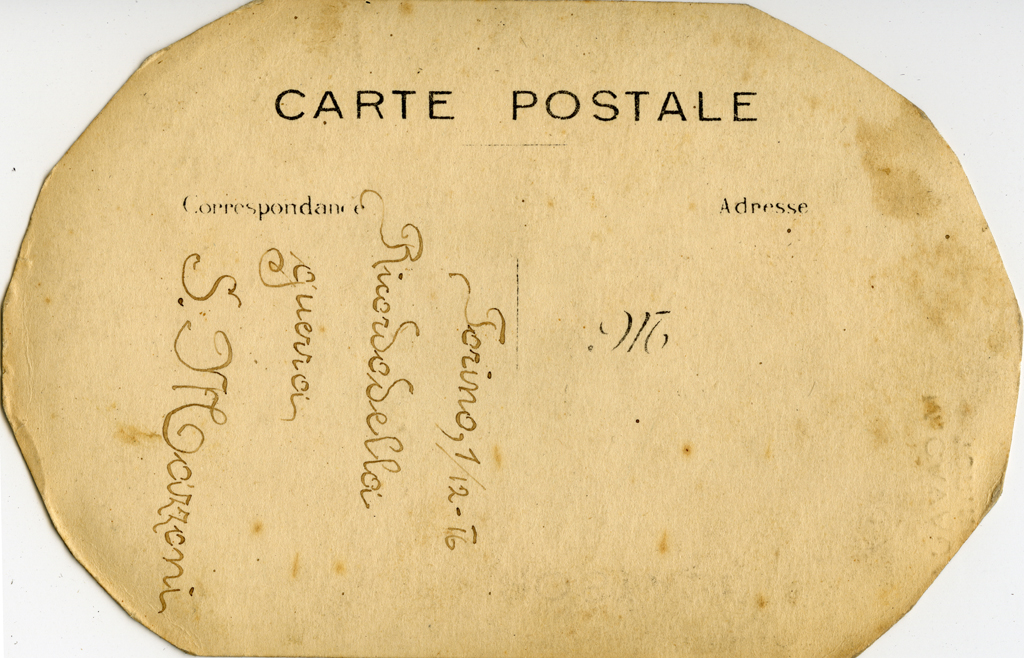 CARTE POSTALE
Correspondance
Adresse
M.
Torino, 1/12-16
Ricordo della
guerra
S. Mazzeni